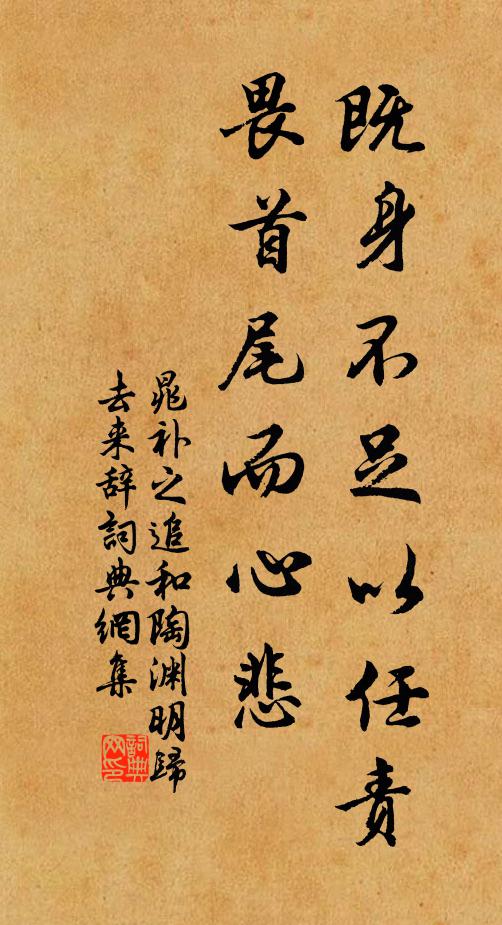 既身不足以任责
畏首尾而心悲
晁补之追和陶渊明歸
去来辞詞典網集
詞典
网印